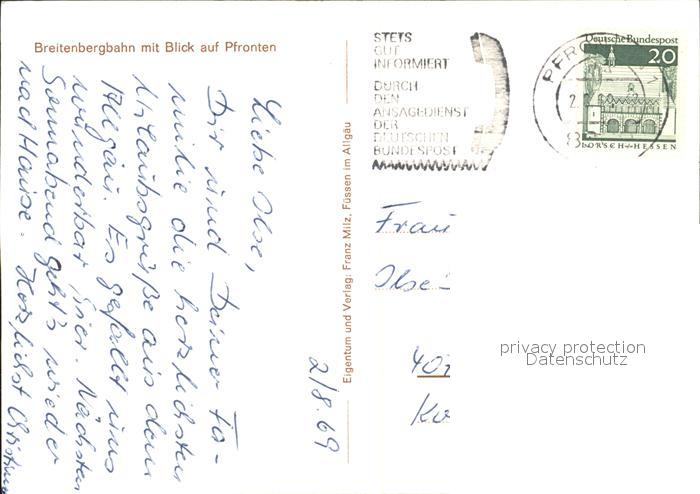 Breitenbergbahn mit Blick auf Pfronten
Liebe Ilse,
Dir und Deiner Fa-
milie die herzlichsten
Urlaubsgrüße aus dem
Allgäu. Es gefällt uns
wunderbar hier. Nächsten
Sonnabend geht's wieder
nach Hause. Herzlichst
2/8.69
Eigentum und Verlag: Franz Milz, Füssen im Allgäu
STETS
GUT
INFORMIERT
DURCH
DEN
ANSAGEDIENST
DER
DEUTSCHEN
BUNDESPOST
PFRO
Deutsche Bundespost
20
LORSCH / HESSEN
Frau
Ilse
40
Ko
privacy protection
Datenschutz